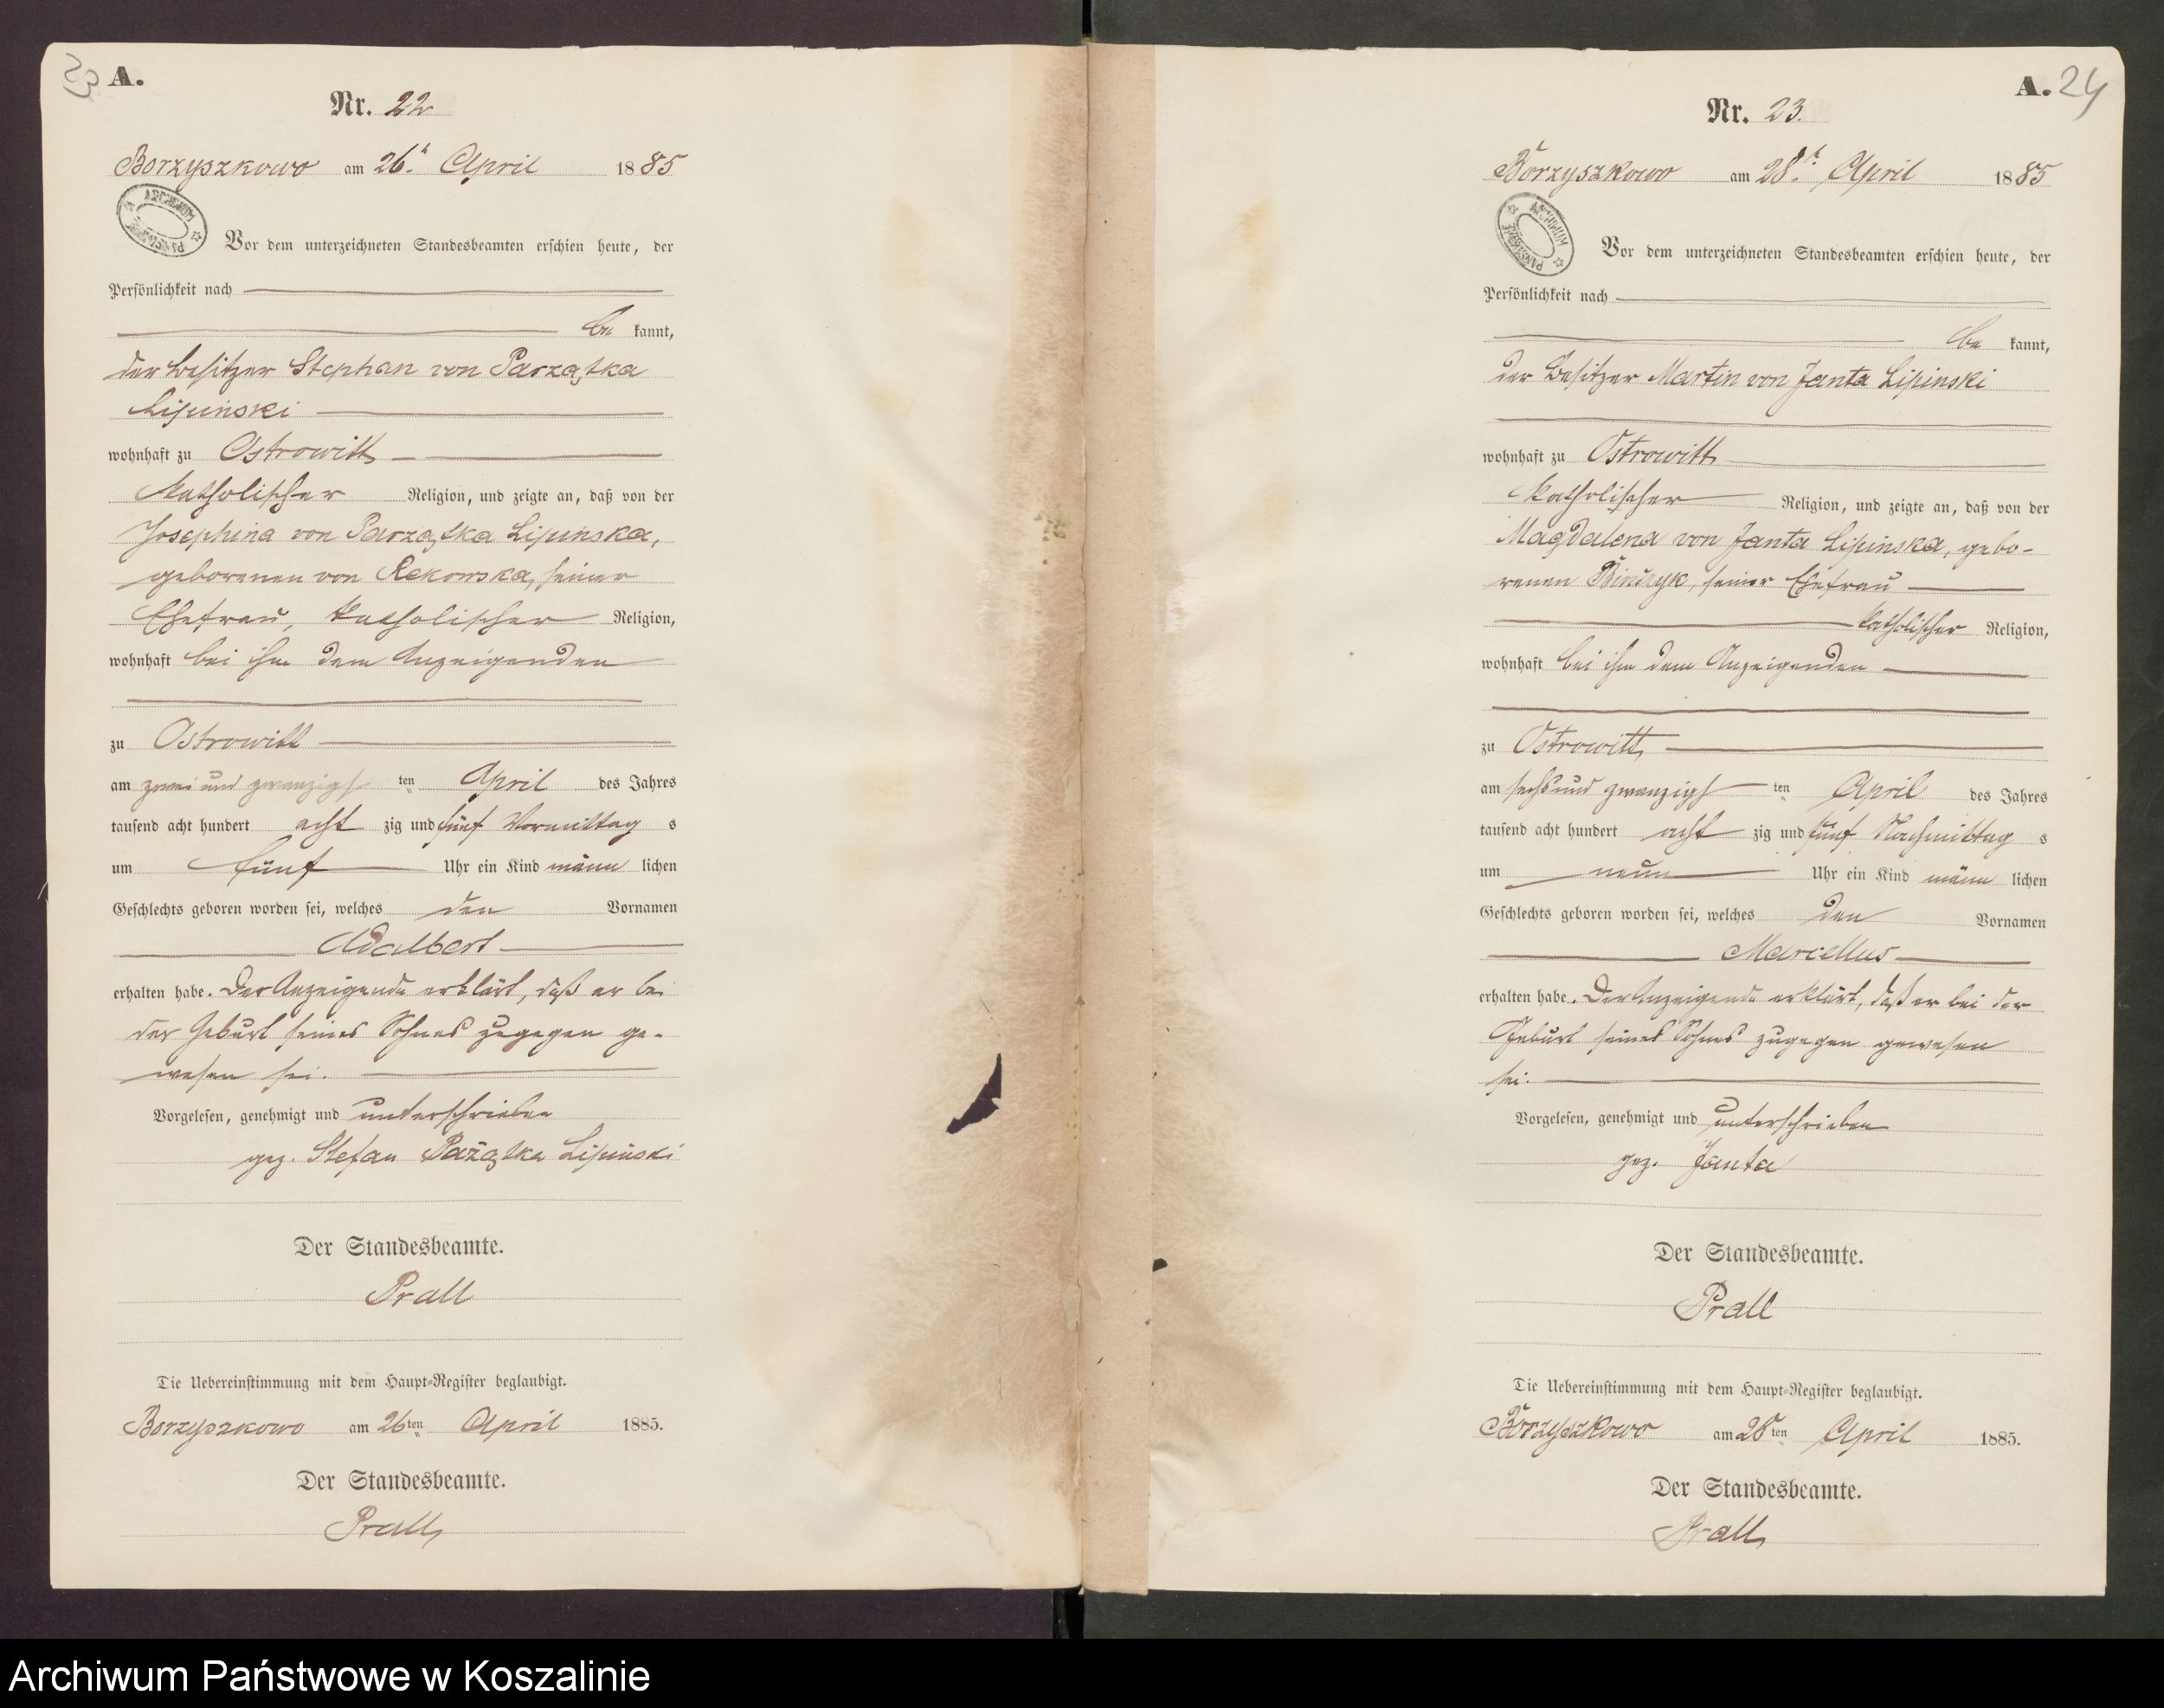 23 A.
Nr. 22
Borzyszkowo am 26t. April 1885
ARCHIWUM
Vor dem unterzeichneten Standesbeamten erschien heute, der
Persönlichkeit nach
be kannt,
der Besitzer Stephan von Parzątka
Lipinski
wohnhaft zu Ostrowitt
katholischer Religion, und zeigte an, daß von der
Josephina von Parzątka Lipinska,
geborenen von Rekowska, seiner
Ehefrau, katholischer Religion,
wohnhaft bei ihm dem Anzeigenden
zu Ostrowitt
am zwei und zwanzigs ten April des Jahres
tausend acht hundert acht zig und fünf Vormittag s
um fünf Uhr ein Kind männ lichen
Geschlechts geboren worden sei, welches den Vornamen
Adalbert
erhalten habe. Der Anzeigende erklärt, daß er bei
der Geburt seines Sohnes zugegen ge-
wesen sei.
Vorgelesen, genehmigt und unterschrieben
gez. Stefan Pażątka Lipiński
Der Standesbeamte.
Prall
Die Uebereinstimmung mit dem Haupt-Register beglaubigt.
Borzyszkowo am 26ten April 1885.
Der Standesbeamte.
Prall
A. 24
Nr. 23.
Borzyszkowo am 28t. April 1885
ARCHIWUM
Vor dem unterzeichneten Standesbeamten erschien heute, der
Persönlichkeit nach
be kannt,
der Besitzer Martin von Janta Lipinski
wohnhaft zu Ostrowitt
katholischer Religion, und zeigte an, daß von der
Magdalena von Janta Lipinska, gebo-
renen Binczyk, seiner Ehefrau
katholischer Religion,
wohnhaft bei ihm dem Anzeigenden
zu Ostrowitt
am sechs und zwanzigs ten April des Jahres
tausend acht hundert acht zig und fünf Nachmittag s
um neun Uhr ein Kind männ lichen
Geschlechts geboren worden sei, welches den Vornamen
Marcellus
erhalten habe. Der Anzeigende erklärt, daß er bei der
Geburt seines Sohnes zugegen gewesen
sei.
Vorgelesen, genehmigt und unterschrieben
gez. Janta
Der Standesbeamte.
Prall
Die Uebereinstimmung mit dem Haupt-Register beglaubigt.
Borzyszkowo am 28ten April 1885.
Der Standesbeamte.
Prall
Archiwum Państwowe w Koszalinie